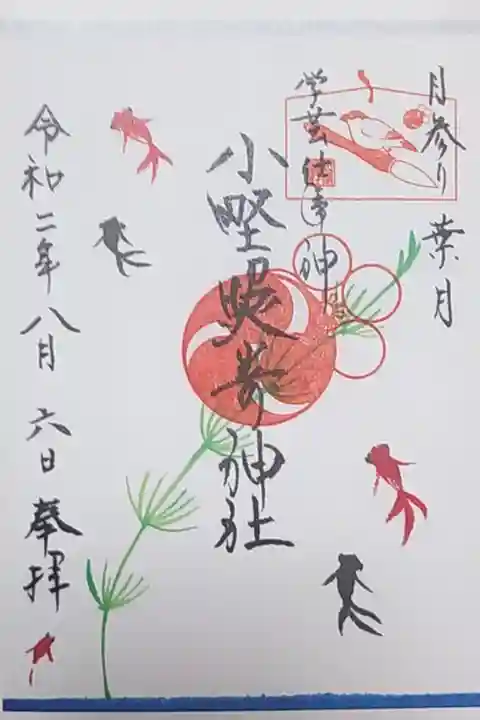 月参り 葉月
学芸仕事神
小野照崎神社
令和二年八月六日 奉拝